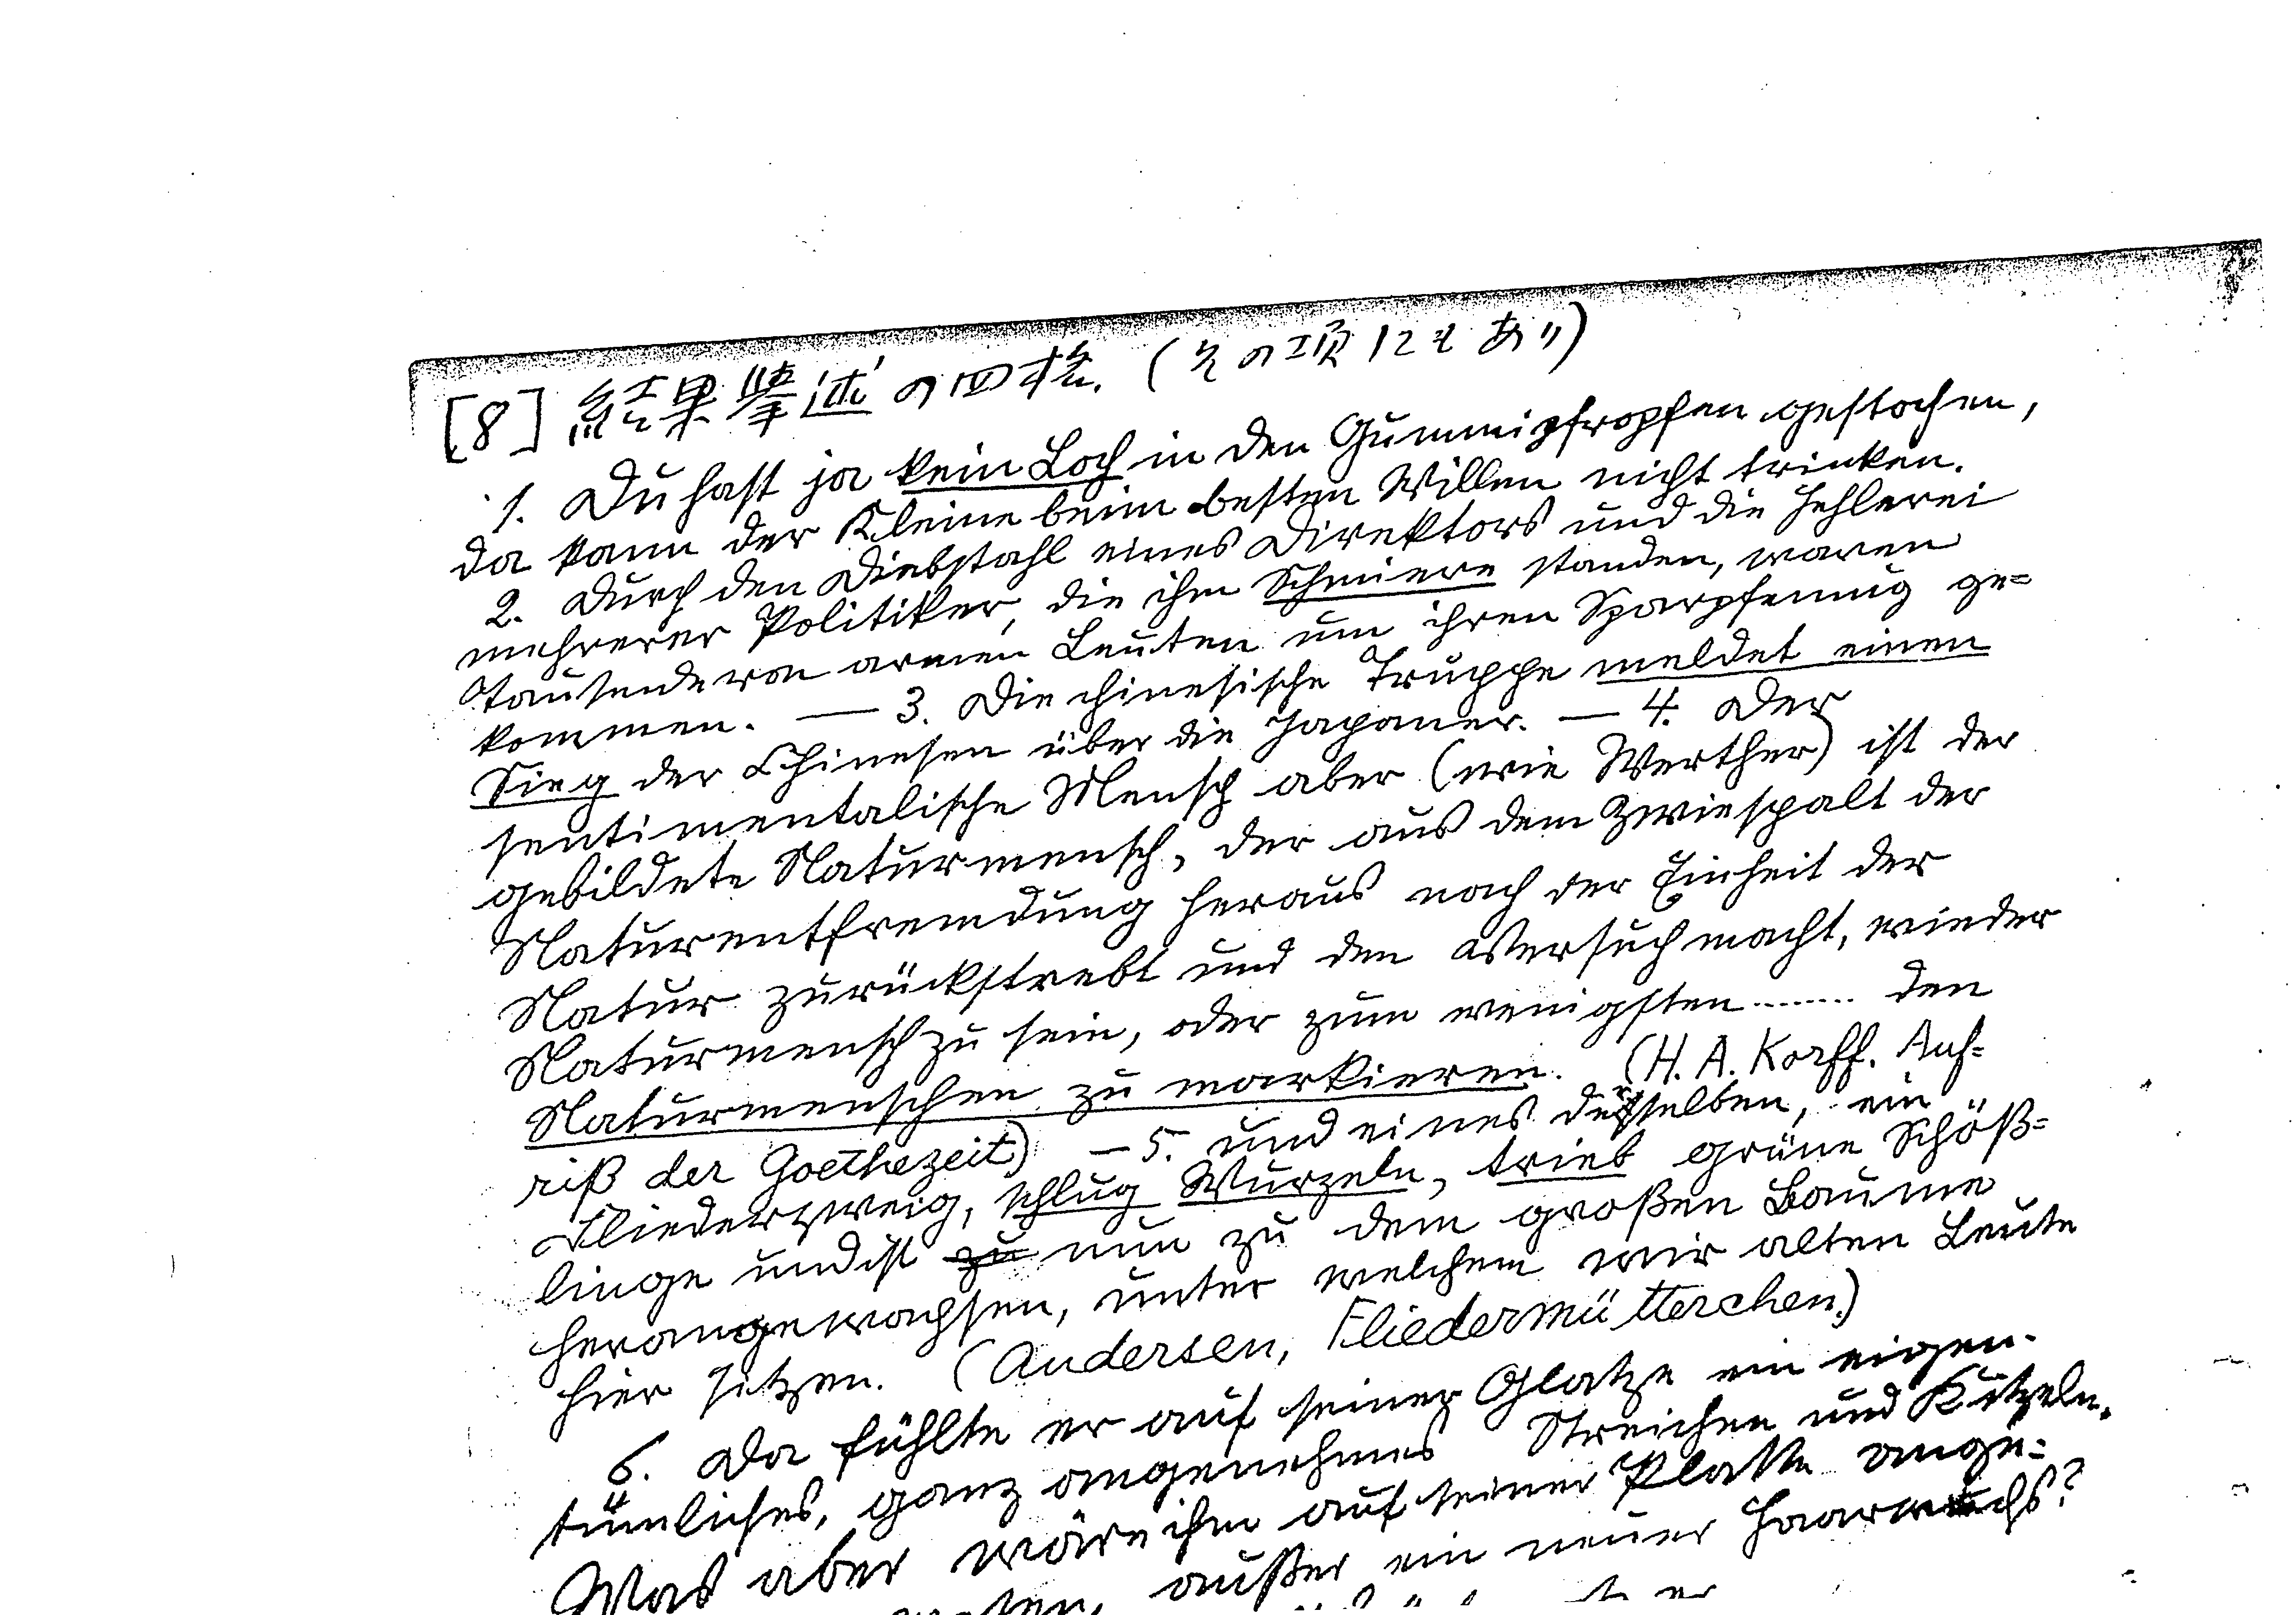 [8] 結果挙述の四格. (名の項にもあり)
1. Du hast ja kein Loch in den Gummipfropfen gestochen,
da kann der Kleine beim besten Willen nicht trinken.
2. Durch den Diebstahl eines Direktors und die Hehlerei
mehrerer Politiker, die ihm Schmiere standen, waren
Tausende von armen Leuten um ihren Sparpfennig ge=
kommen. — 3. Die chinesische Truppe meldet einen
Sieg der Chinesen über die Japaner. — 4. Der
sentimentalische Mensch aber (wie Werther) ist der
gebildete Naturmensch, der aus dem Zwiespalt der
Naturentfremdung heraus nach der Einheit der
Natur zurückstrebt und den Versuch macht, wieder
Naturmensch zu sein, oder zum wenigsten ........ den
Naturmenschen zu markieren. (H. A. Korff. Auf=
riß der Goethezeit) — 5. und eines desselben, ein
Fliederzweig, schlug Wurzeln, trieb grüne Schöß=
linge und ist zu nun zu dem großen Baume
herangewachsen, unter welchem wir alten Leute
hier sitzen. (Andersen, Fliedermütterchen.)
6. Da fühlte er auf seiner Glatze ein eigen-
tümliches, ganz angenehmes Streichen und Kitzeln.
Was aber wäre ihm auf seiner Platte ange=
außer ein neuer Haarwuchs?